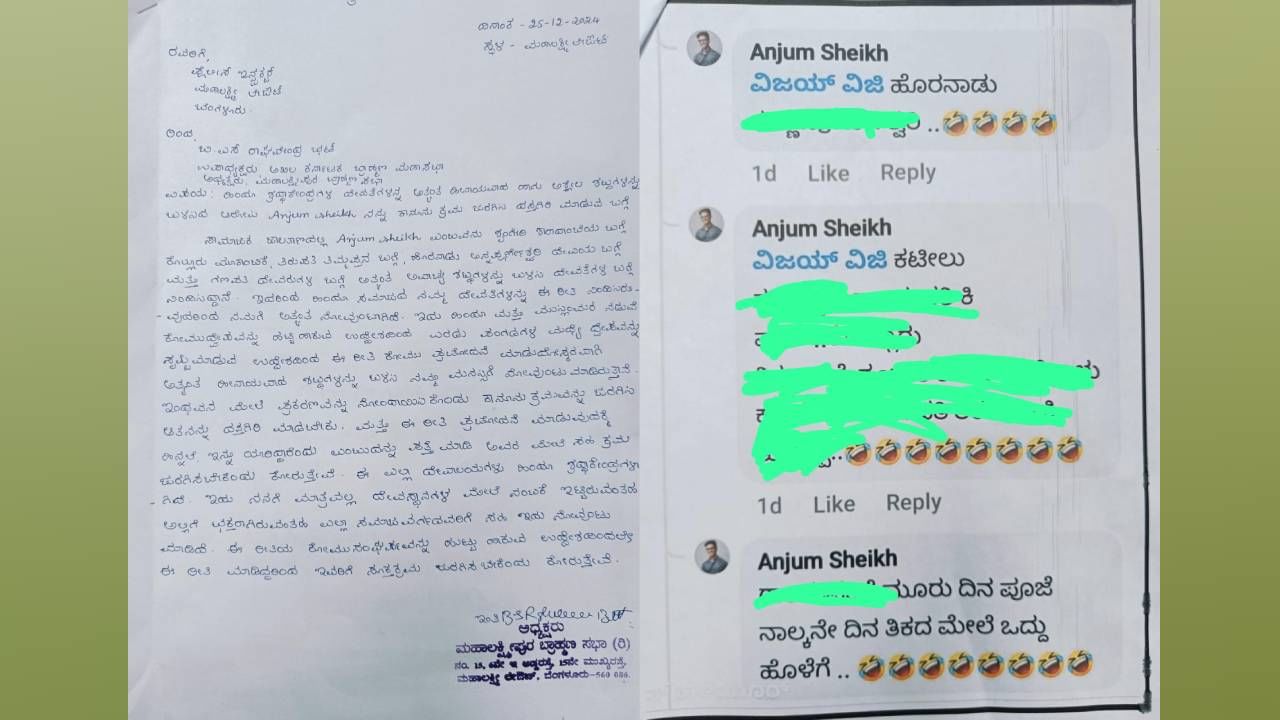 ದಿನಾಂಕ - 25-12-2024
ಸ್ಥಳ - ಮಹಾಲಕ್ಷ್ಮೀ ಲೇಔಟ್
ರವರಿಗೆ,
ಪೊಲೀಸ್ ಇನ್ಸ್ಪೆಕ್ಟರ್
ಮಹಾಲಕ್ಷ್ಮೀ ಲೇಔಟ್
ಬೆಂಗಳೂರು.
ಇಂದ,
ಬಿ.ಎಸ್ ರಾಘವೇಂದ್ರ ಭಟ್
ಉಪಾಧ್ಯಕ್ಷರು ಅಖಿಲ ಕರ್ನಾಟಕ ಬ್ರಾಹ್ಮಣ ಮಹಾಸಭಾ
ಅಧ್ಯಕ್ಷರು, ಮಹಾಲಕ್ಷ್ಮೀಪುರ ಬ್ರಾಹ್ಮಣ ಸಭಾ
ವಿಷಯ: ಹಿಂದೂ ಶ್ರದ್ಧಾಕೇಂದ್ರಗಳ ದೇವತೆಗಳನ್ನು ಅತ್ಯಂತ ಹೀನಾಯವಾದ ಹಾಗು ಅಶ್ಲೀಲ ಶಬ್ದಗಳನ್ನು
ಬಳಸಿದ ಆರೋಪಿ Anjum sheikh ನನ್ನು ಕಾನೂನು ಕ್ರಮ ಜರುಗಿಸಿ ದಸ್ತಗಿರಿ ಮಾಡುವ ಬಗ್ಗೆ
ಸಾಮಾಜಿಕ ಜಾಲತಾಣದಲ್ಲಿ Anjum sheikh ಎಂಬುವನು ಶೃಂಗೇರಿ ಶಾರದಾಂಬೆಯ ಬಗ್ಗೆ
ಕೊಲ್ಲೂರು ಮೂಕಾಂಬಿಕೆ, ತಿರುಪತಿ ತಿಮ್ಮಪ್ಪನ ಬಗ್ಗೆ, ಹೊರನಾಡು ಅನ್ನಪೂರ್ಣೇಶ್ವರಿ ದೇವಿಯ ಬಗ್ಗೆ
ಮತ್ತು ಗಣಪತಿ ದೇವರುಗಳ ಬಗ್ಗೆ ಅತ್ಯಂತ ಅವಾಚ್ಯ ಶಬ್ದಗಳನ್ನು ಬಳಸಿ ದೇವತೆಗಳ ಬಗ್ಗೆ
ನಿಂದಿಸಿದ್ದಾನೆ. ಇದರಿಂದ ಹಿಂದೂ ಸಮಾಜದ ನಮ್ಮ ದೇವತೆಗಳನ್ನು ಈ ರೀತಿ ನಿಂದಿಸಿರು-
-ವುದರಿಂದ ನಮಗೆ ಅತ್ಯಂತ ನೋವುಂಟಾಗಿದೆ. ಇದು ಹಿಂದೂ ಮತ್ತು ಮುಸ್ಲಿಂಮರ ನಡುವೆ
ಕೋಮುದ್ವೇಷವನ್ನು ಹುಟ್ಟಿ ಹಾಕುವ ಉದ್ದೇಶದಿಂದ ಎರಡು ಪಂಗಡಗಳ ಮಧ್ಯೆ ದ್ವೇಷವನ್ನು
ಸೃಷ್ಟಿಮಾಡುವ ಉದ್ದೇಶದಿಂದ ಈ ರೀತಿ ಕೋಮು ಪ್ರಚೋದನೆ
ಅತ್ಯಂತ ಹೀನಾಯವಾದ ಶಬ್ದಗಳನ್ನು ಬಳಸಿ ನಮ್ಮ ಮನಸ್ಸಿಗೆ ನೋವುಂಟು ಮಾಡಿರುತ್ತಾನೆ.
ಇಂಥವನ ಮೇಲೆ ಪ್ರಕರಣವನ್ನು ನೋಂದಾಯಿಸಿಕೊಂಡು ಕಾನೂನು ಕ್ರಮವನ್ನು ಜರುಗಿಸಿ
ಆತನನ್ನು ದಸ್ತಗಿರಿ ಮಾಡಬೇಕು. ಮತ್ತು ಈ ರೀತಿ ಪ್ರಚೋದನೆ ಮಾಡುವುದಕ್ಕೆ
ಇನ್ನು ಯಾರಿದ್ದಾರೆಂದು ಎಂಬುದನ್ನು ಪತ್ತೆ ಮಾಡಿ ಅವರ ಮೇಲೆ ಸಹ ಕ್ರಮ
ಜರುಗಿಸಬೇಕೆಂದು ಕೋರುತ್ತೇವೆ. ಈ ಎಲ್ಲಾ ದೇವಾಲಯಗಳು ಹಿಂದೂ ಶ್ರದ್ಧಾಕೇಂದ್ರಗಳಾ
-ಗಿದೆ. ಇದು ನನಗೆ ಮಾತ್ರವಲ್ಲ, ದೇವಸ್ಥಾನಗಳ ಮೇಲೆ ನಂಬಿಕೆ ಇಟ್ಟಿರುವಂತಹ
ಅಲ್ಲಿಗೆ ಭಕ್ತರಾಗಿರುವಂತಹ ಎಲ್ಲಾ ಸಮಾಜವರ್ಗದವರಿಗೆ ಸಹ ಇದು ನೋವುಂಟು
ಮಾಡಿದೆ. ಈ ರೀತಿಯ ಕೋಮುಸಂಘರ್ಷವನ್ನು ಹುಟ್ಟು ಹಾಕುವ ಉದ್ದೇಶದಿಂದಲೇ
ಈ ರೀತಿ ಮಾಡಿದ್ದರಿಂದ ಇವರಿಗೆ ಸೂಕ್ತಕ್ರಮ ಜರುಗಿಸಬೇಕೆಂದು ಕೋರುತ್ತೇವೆ.
ಇಂತಿ
ಅಧ್ಯಕ್ಷರು
ಮಹಾಲಕ್ಷ್ಮೀಪುರ ಬ್ರಾಹ್ಮಣ ಸಭಾ (ರಿ)
ನಂ. 15, 6ನೇ ಇ ಅಡ್ಡರಸ್ತೆ, 15ನೇ ಮುಖ್ಯರಸ್ತೆ,
ಮಹಾಲಕ್ಷ್ಮೀ ಲೇಔಟ್, ಬೆಂಗಳೂರು-560 086.
Anjum Sheikh
ವಿಜಯ್ ವಿಜಿ ಹೊರನಾಡು
..🤣🤣🤣🤣
1d Like Reply
Anjum Sheikh
ವಿಜಯ್ ವಿಜಿ ಕಟೀಲು
..🤣🤣🤣🤣🤣🤣🤣🤣
1d Like Reply
Anjum Sheikh
ಮೂರು ದಿನ ಪೂಜೆ
ನಾಲ್ಕನೇ ದಿನ ತಿಕದ ಮೇಲೆ ಒದ್ದು
ಹೊಳೆಗೆ .. 🤣🤣🤣🤣🤣🤣🤣🤣